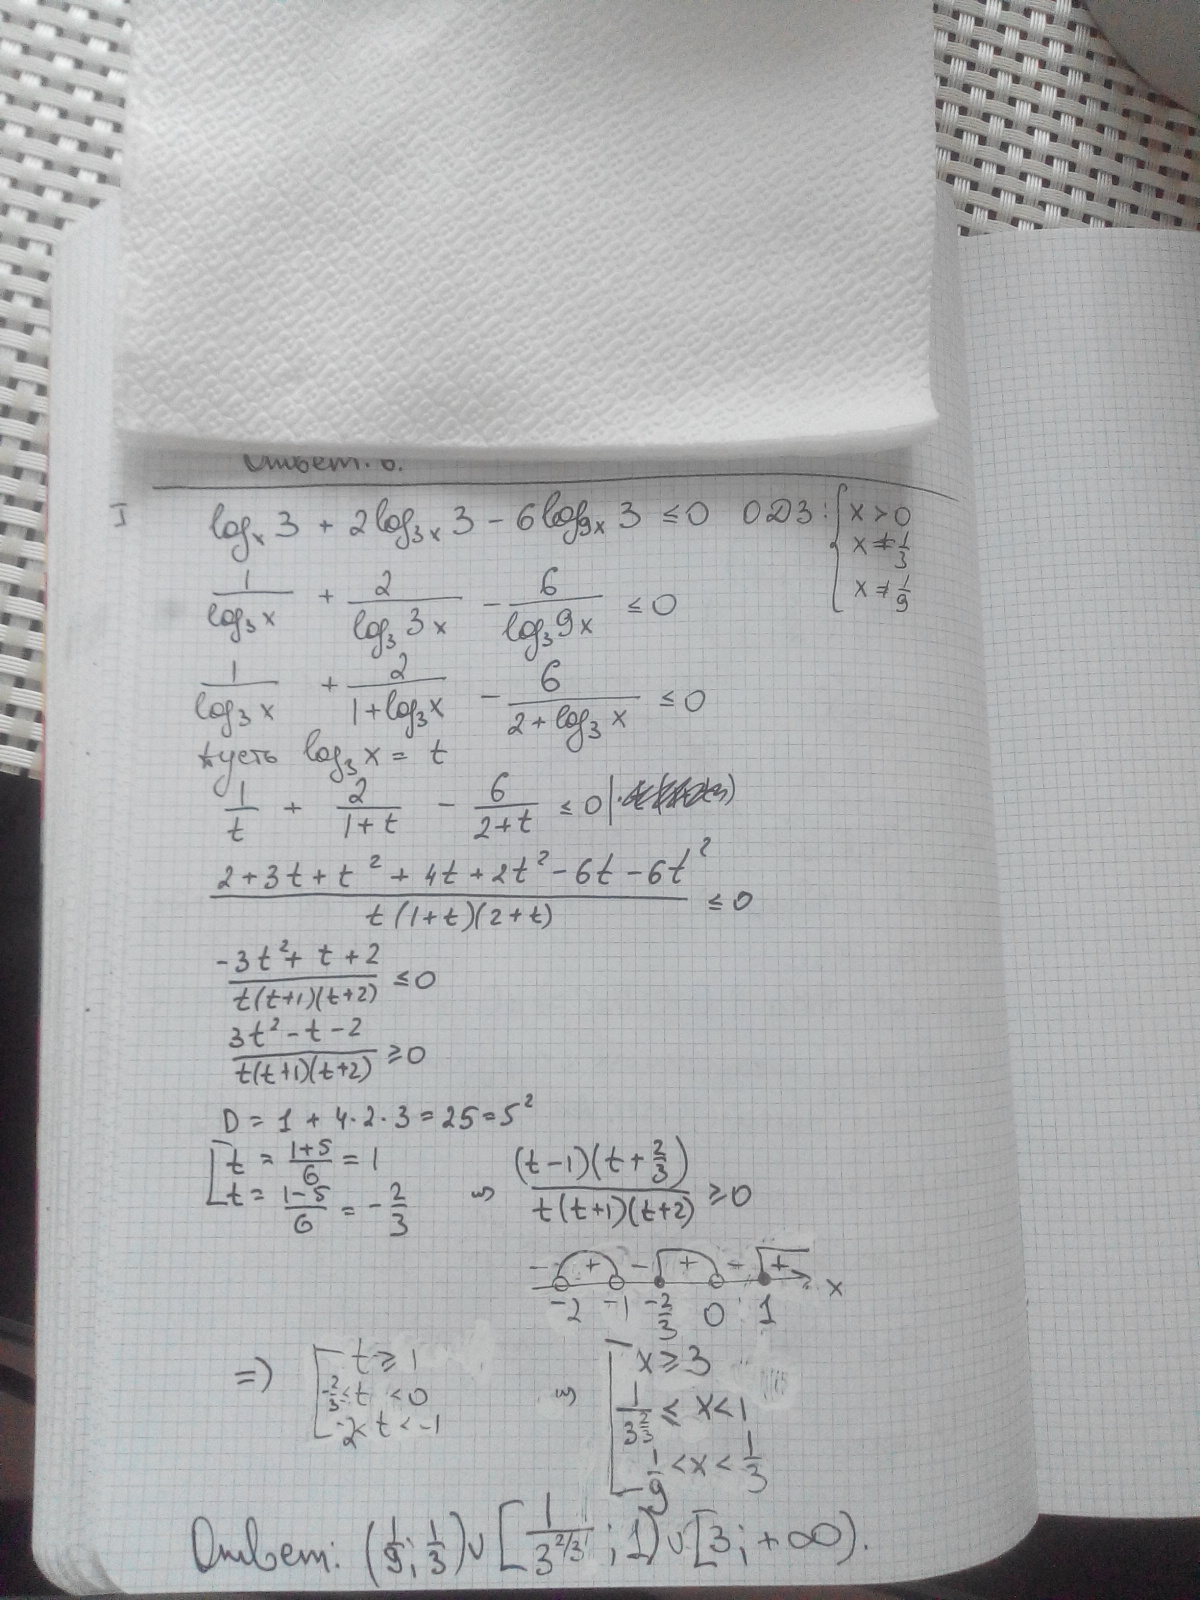 Ответ: 6.
I log_x 3 + 2log_{3x} 3 - 6log_{9x} 3 ≤ 0 ОДЗ: { x > 0
x ≠ 1/3
x ≠ 1/9
1/(log_3 x) + 2/(log_3 3x) - 6/(log_3 9x) ≤ 0
1/(log_3 x) + 2/(1+log_3 x) - 6/(2+log_3 x) ≤ 0
пусть log_3 x = t
1/t + 2/(1+t) - 6/(2+t) ≤ 0 |
(2+3t+t²+4t+2t²-6t-6t²)/(t(1+t)(2+t)) ≤ 0
(-3t²+t+2)/(t(t+1)(t+2)) ≤ 0
(3t²-t-2)/(t(t+1)(t+2)) ≥ 0
D = 1 + 4·2·3 = 25 = 5²
[ t = (1+5)/6 = 1
t = (1-5)/6 = -2/3 ⇒ ((t-1)(t+2/3))/(t(t+1)(t+2)) ≥ 0
- + - + - + x
-2 -1 -2/3 0 1
=> [ t ≥ 1
-2/3 ≤ t < 0
-2 < t < -1
⇒ [ x ≥ 3
1/3^{2/3} ≤ x < 1
1/9 < x < 1/3
Ответ: (1/9; 1/3) ∪ [1/3^{2/3}; 1) ∪ [3; +∞).